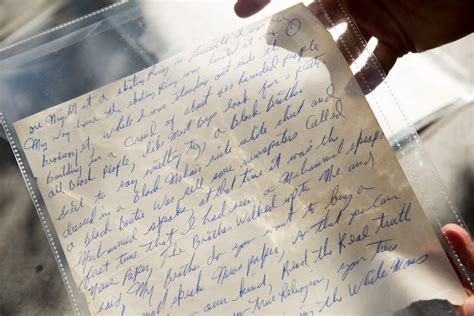 one Night at a skating Ring in Louisville
My leave the skating Ring was
Broadway St, while I was standing out side the
Building in a Crowd of about 400 hundred people
all Black People, like Most Boys look for a pretty
Girl to say something too, a Black Brother
dressed in a Black Mohair suite white shirt and
a Black Bowtie was sell some newspapers Called
Muhammad speaks, at that time it was the
first time that I had seen a Muhammad speaks
News Paper, The Brother Walked upto Me and
said, My Brother do you want to buy a
speaks News paper, so that you can
own kind, Read the Real truth
true Religion, your True
the White Mans